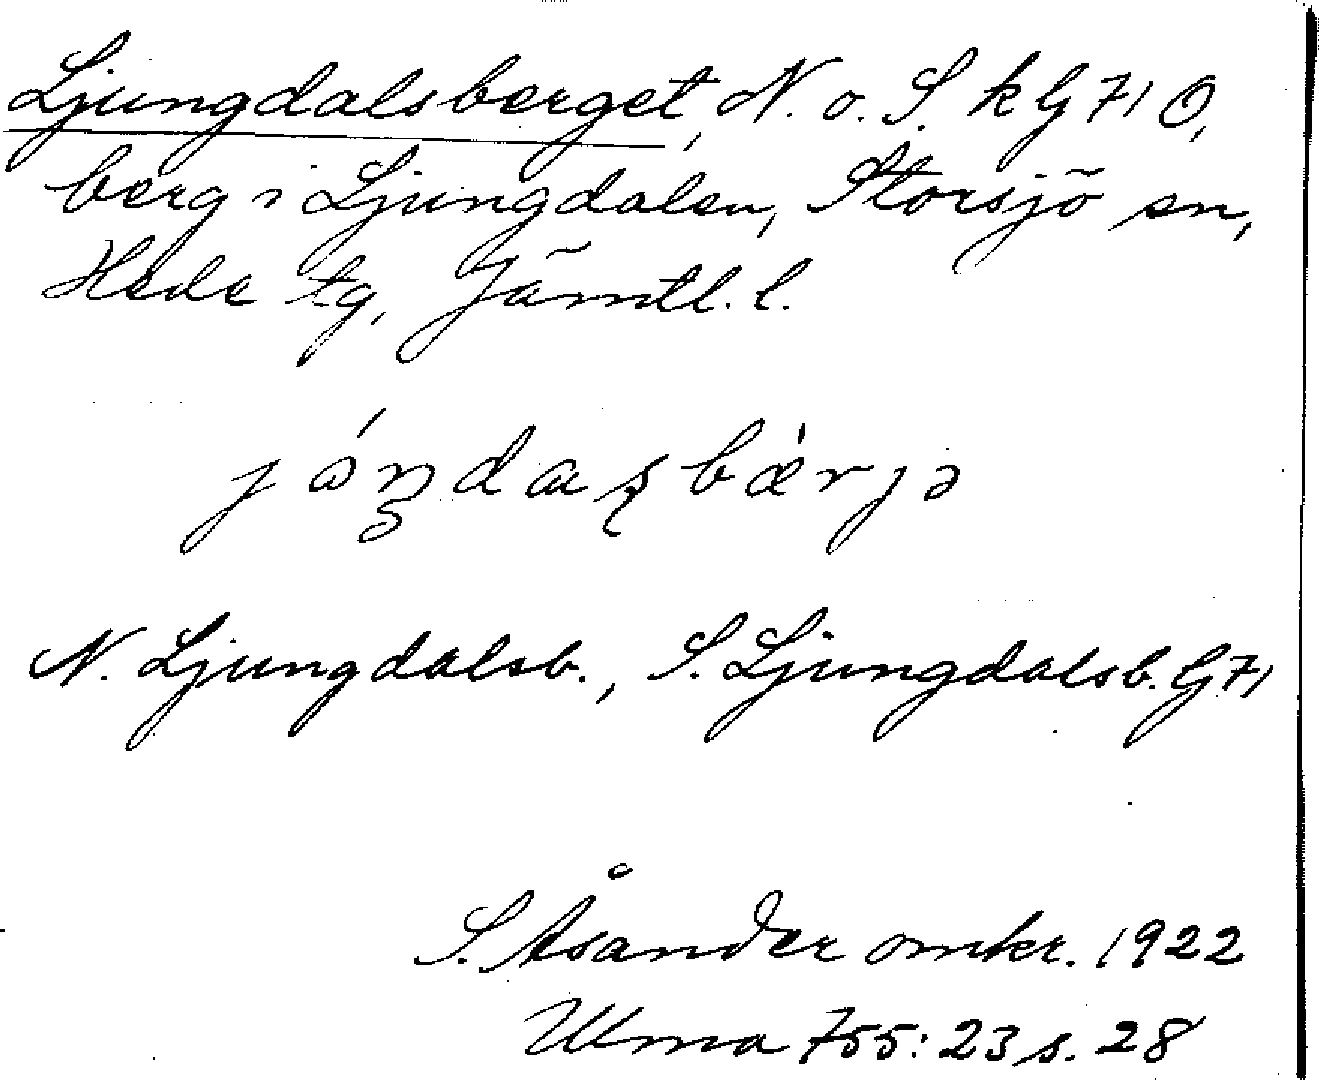 Ljungdalsberget, N. o. S. k G 71 O,
berg i Ljungdalen, Storsjö sn,
Hede tg, Jämtl. l.
N. Ljungdalsb., S. Ljungdalsb. G 71
S. Åsander omkr. 1922
Ulma 755:23 s. 28